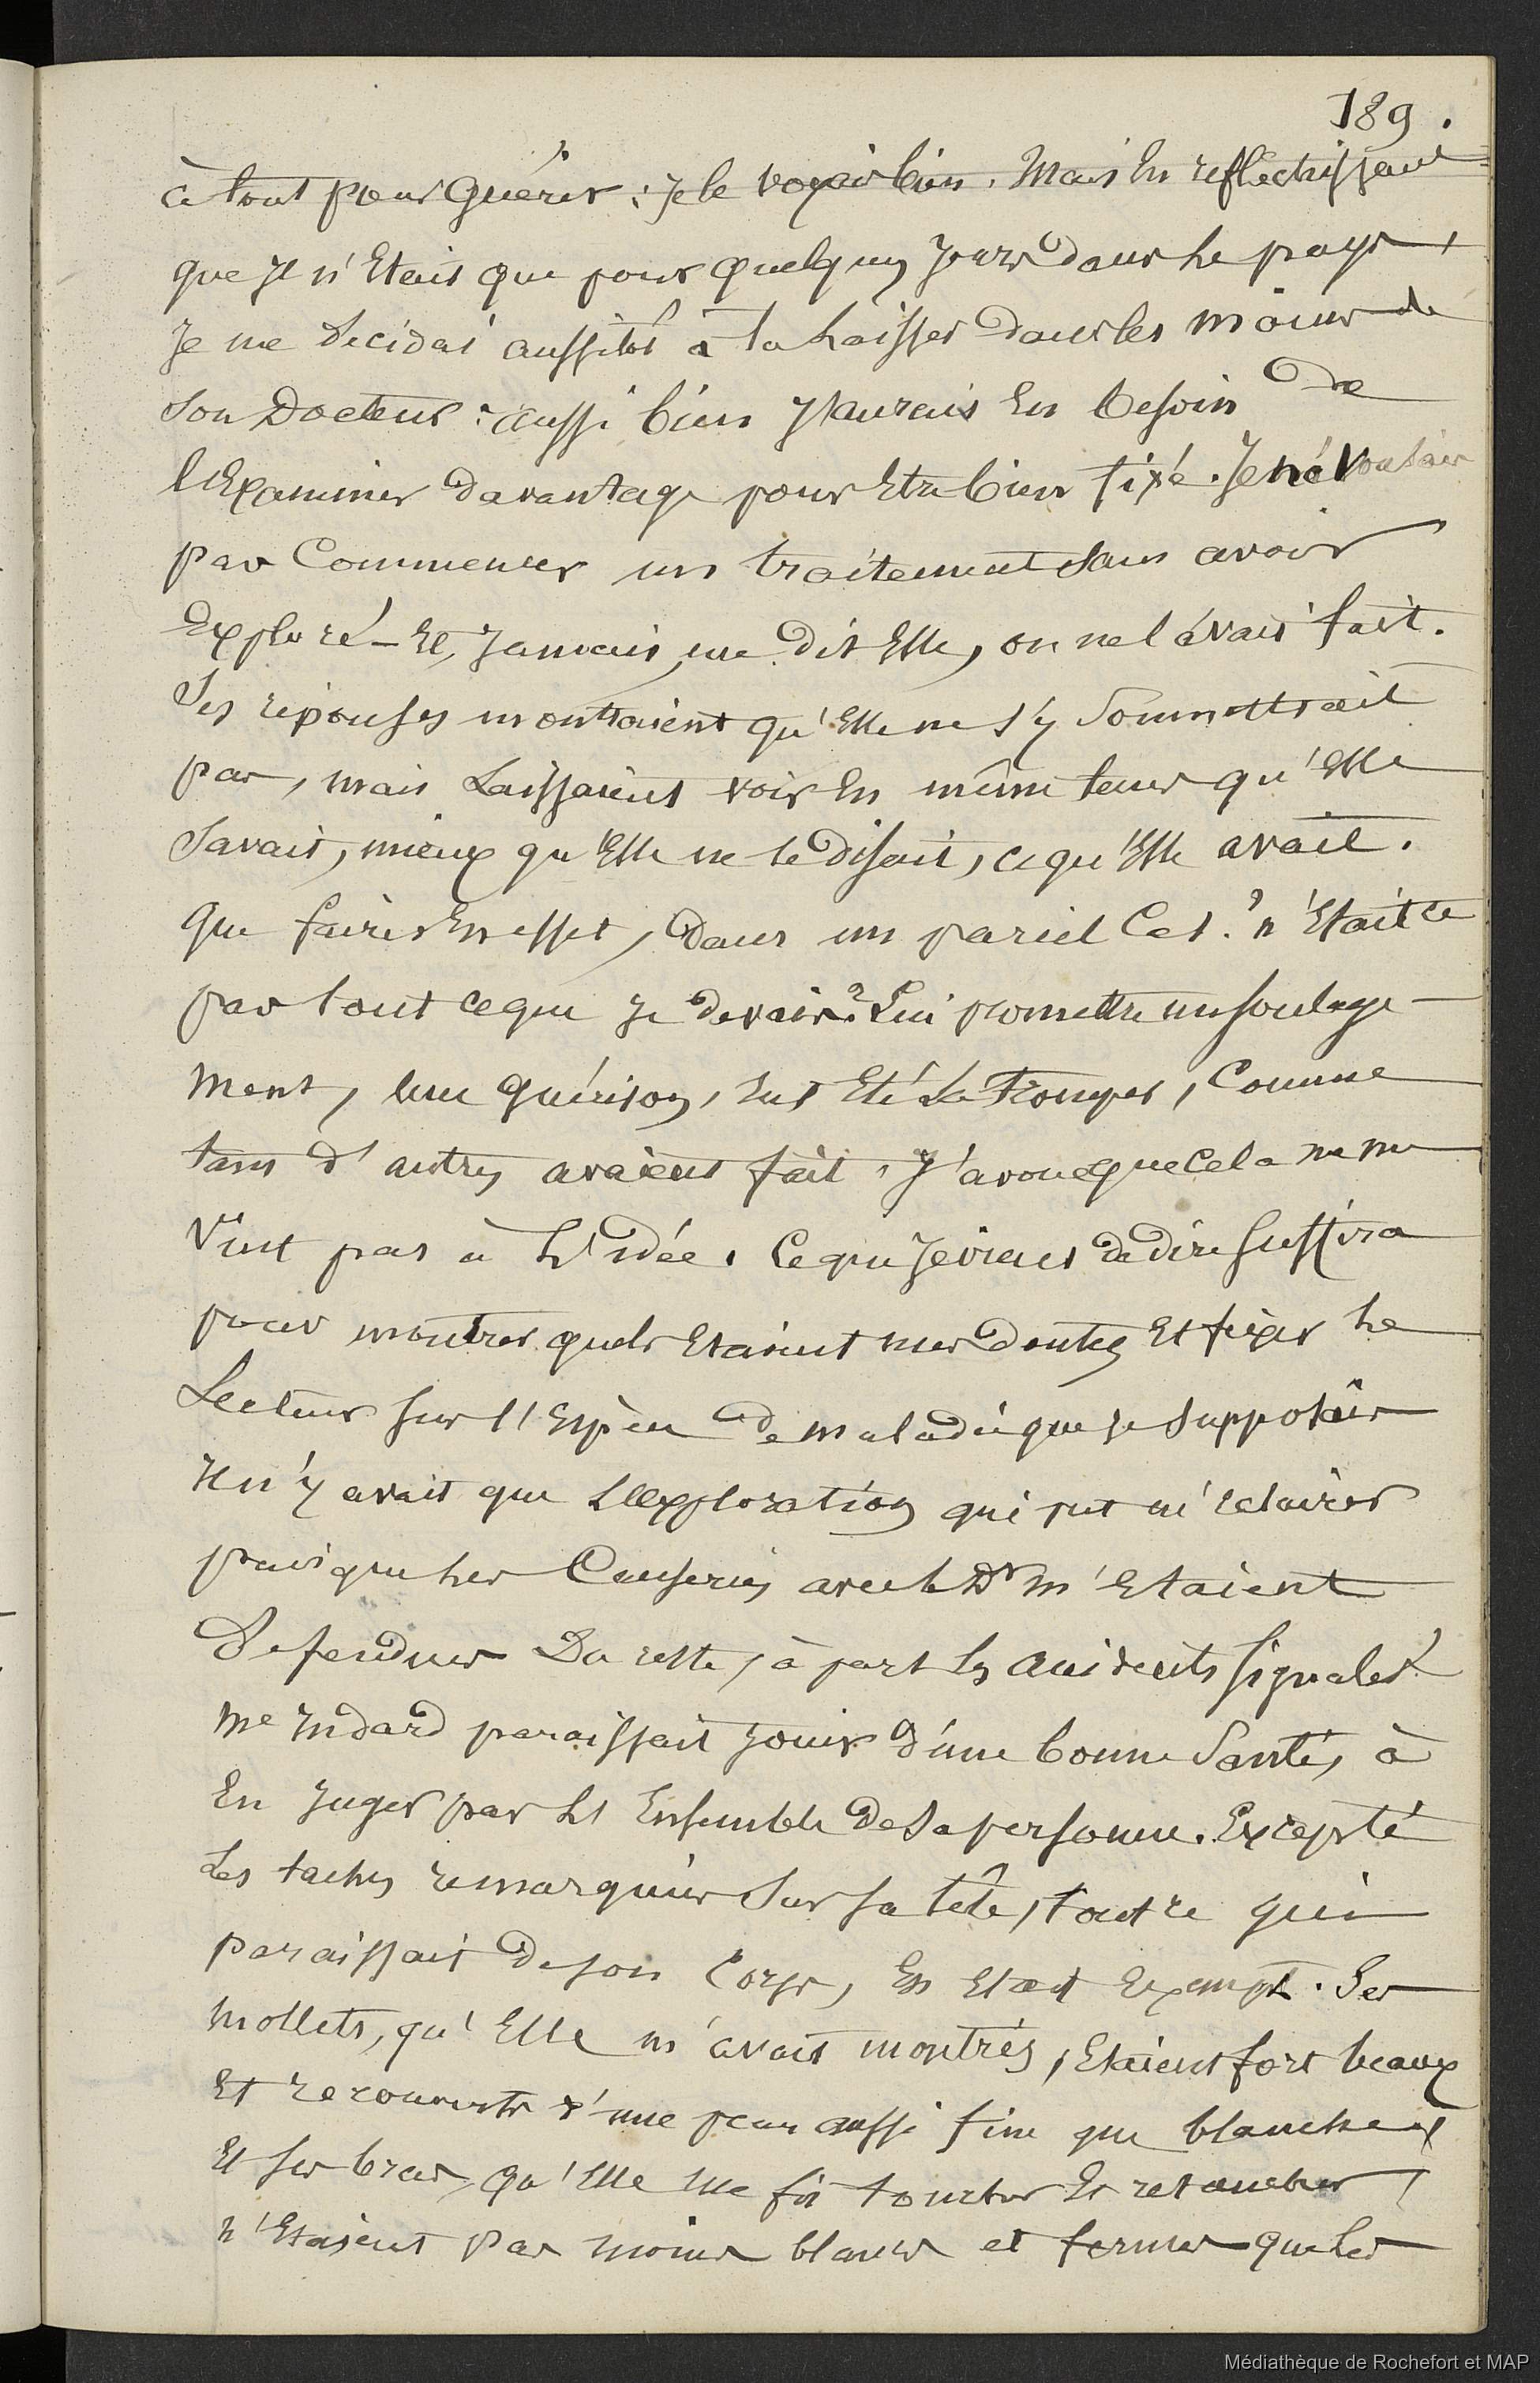 189.
à tout pour guérir : je le voyais bien. Mais En reflechissant
que je n'Etais que pour quelques jours dans le pays,
je me decidai aussitôt à la laisser dans les mains de
son Docteur : aussi bien j'aurais Eu besoin de
l'Examiner davantage pour Etre bien fixé. Je ne voulais
pas Commencer un traitement sans avoir
Exploré _ Et, jamais, me dit Elle, on ne l'avait fait.
Ses réponses montraient qu'Elle ne s'y soumettrait
pas, mais Laissaient voir En même tems qu'Elle
savait, mieux qu'Elle ne le disait, ce qu'Elle avait.
Que faire, En effet, dans un pareil Cas ? n'Etait ce
pas tout ce que je devais ? Lui promettre un soulage-
ment, une guérison, Eut Eté La Tromper, Comme
tant d'autres avaient fait. J'avoue que Cela ne me
vint pas à L'idée. Ce que je viens de dire suffira
pour montrer quels Etaient mes doutes Et fixer le
Lecteur sur l'Espèce de maladie que je supposais
Il n'y avait que L'Exploration qui put m'éclairer
puisque les Causeries avec le Dr m'Etaient
Defendues Du reste, à part les accidents signalés
Me Indard paraissait jouir d'une bonne Santé, à
En juger par L'Ensemble de sa personne. Excepté
Les taches remarquées sur sa tête, tout ce qui
paraissait de son Corps, En Etait Exempt. Ses
mollets, qu'Elle m'avait montrés, Etaient fort beaux
Et recouverts d'une peau aussi fine que blanche
Et ses bras, qu'Elle me fit toucher Et retoucher,
n'Etaient pas moins blancs et fermes que les
Médiathèque de Rochefort et MAP